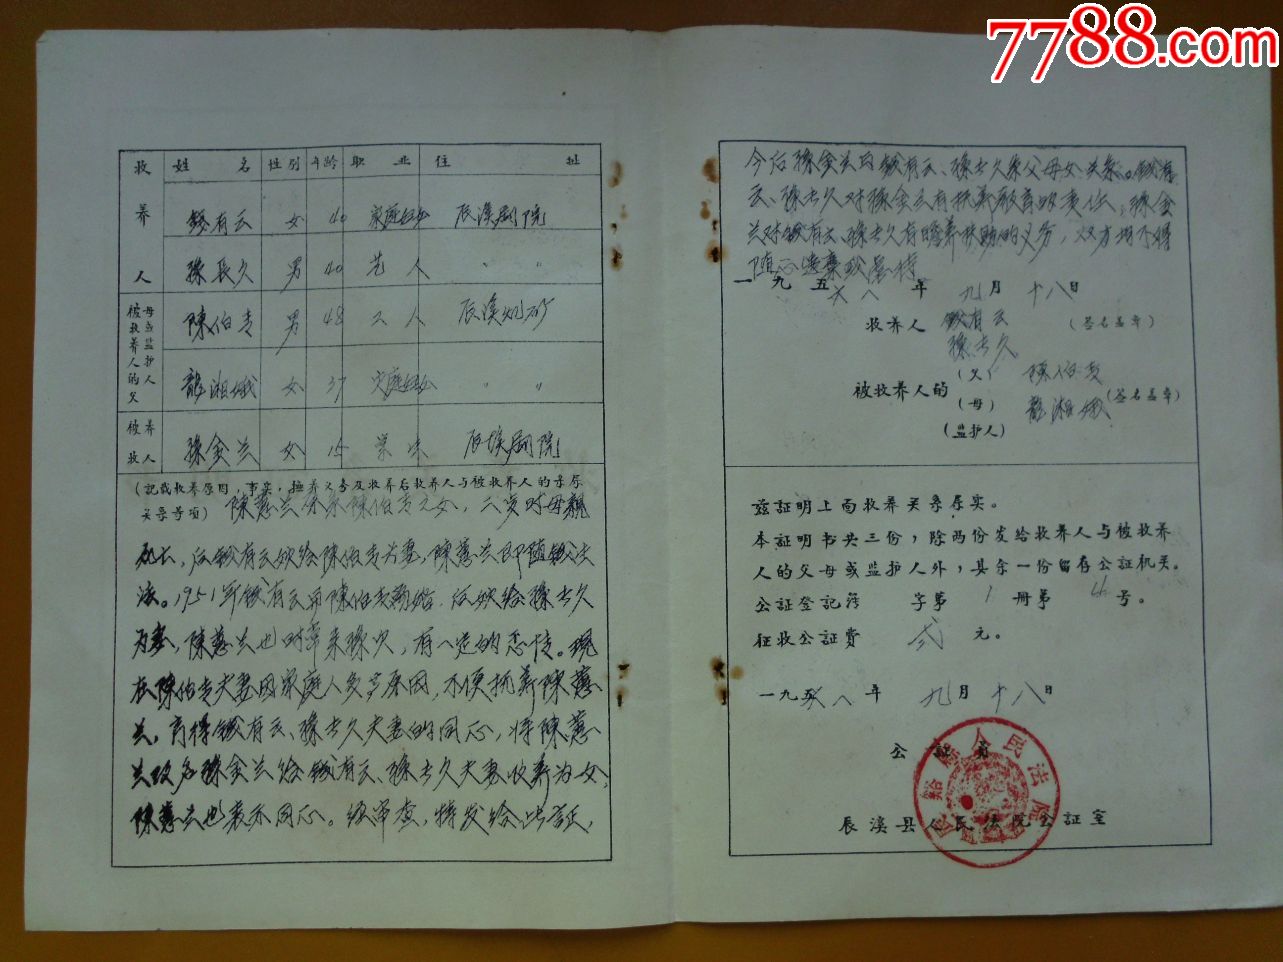 7788.com
收养人 姓名 性别 年龄 职业 住址
钱有云 女 40 家庭妇女 辰溪剧院
孫長久 男 40 艺人 〃 〃
被收养人的父母或监护人
陳伯 男 48 工人 辰溪
龍湘娥 女 37 家庭妇女 〃 〃
被收养人
孫金兰 女 15 辰溪剧院
(記载收养原因,事实,撫养义务及收养后收养人与被收养人的亲属
关系等項) 陳蕙兰 陳伯 之女,二岁时母親
死亡,后 有云 给陳伯 为妻,陳蕙兰即随 生
活。1951年 有云与陳伯 离婚,后 给孫長久
为妻,陳蕙兰也时常来孫家,有一定的恩情。現
在陳伯 夫妻因家庭人多等原因,不便抚养陳蕙
兰,商得 有云、孫長久夫妻的同意,将陳蕙
兰改名孫金兰给 有云、孫長久夫妻收养为女,
陳蕙兰也表示同意。经审查,特发给此証,
今后孫金兰与 有云、孫長久系父母女关系。 有
云、孫長久对孫金兰有抚养教育的责任;孫金
兰对 有云、孫長久有赡养扶助的义务,双方均不得
随意遗棄或虐待
一九五八年九月十八日
收养人 有云 (签名盖章)
孫長久
被收养人的 (父) 陳伯
(母) 龍湘娥 (签名盖章)
(监护人)
兹証明上面收养关系属实。
本証明书共三份,除两份发给收养人与被收养
人的父母或监护人外,其余一份留存公証机关。
公証登記 字第 1 册第 4 号。
征收公証費 贰 元。
一九五八年九月十八日
公証員
辰溪县人民法院公証室
辰谿縣人民法院